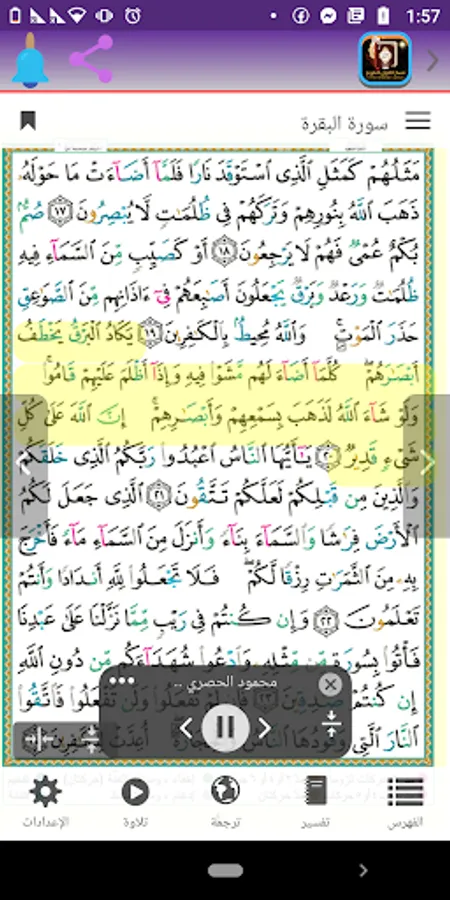 1:57
سورة البقرة
مَثَلُهُمْ كَمَثَلِ ٱلَّذِى ٱسْتَوْقَدَ نَارًا فَلَمَّآ أَضَآءَتْ مَا حَوْلَهُۥ
ذَهَبَ ٱللَّهُ بِنُورِهِمْ وَتَرَكَهُمْ فِى ظُلُمَٰتٍ لَّا يُبْصِرُونَ ١٧ صُمٌّۢ
بُكْمٌ عُمْىٌ فَهُمْ لَا يَرْجِعُونَ ١٨ أَوْ كَصَيِّبٍ مِّنَ ٱلسَّمَآءِ فِيهِ
ظُلُمَٰتٌ وَرَعْدٌ وَبَرْقٌ يَجْعَلُونَ أَصَٰبِعَهُمْ فِىٓ ءَاذَانِهِم مِّنَ ٱلصَّوَٰعِقِ
حَذَرَ ٱلْمَوْتِ ۚ وَٱللَّهُ مُحِيطٌۢ بِٱلْكَٰفِرِينَ ١٩ يَكَادُ ٱلْبَرْقُ يَخْطَفُ
أَبْصَٰرَهُمْ ۖ كُلَّمَآ أَضَآءَ لَهُم مَّشَوْا۟ فِيهِ وَإِذَآ أَظْلَمَ عَلَيْهِمْ قَامُوا۟ ۚ
وَلَوْ شَآءَ ٱللَّهُ لَذَهَبَ بِسَمْعِهِمْ وَأَبْصَٰرِهِمْ ۚ إِنَّ ٱللَّهَ عَلَىٰ كُلِّ
شَىْءٍ قَدِيرٌ ٢٠ يَٰٓأَيُّهَا ٱلنَّاسُ ٱعْبُدُوا۟ رَبَّكُمُ ٱلَّذِى خَلَقَكُمْ
وَٱلَّذِينَ مِن قَبْلِكُمْ لَعَلَّكُمْ تَتَّقُونَ ٢١ ٱلَّذِى جَعَلَ لَكُمُ
ٱلْأَرْضَ فِرَٰشًا وَٱلسَّمَآءَ بِنَآءً وَأَنزَلَ مِنَ ٱلسَّمَآءِ مَآءً فَأَخْرَجَ
بِهِۦ مِنَ ٱلثَّمَرَٰتِ رِزْقًا لَّكُمْ ۖ فَلَا تَجْعَلُوا۟ لِلَّهِ أَندَادًا وَأَنتُمْ
تَعْلَمُونَ ٢٢ وَإِن كُنتُمْ فِى رَيْبٍ مِّمَّا نَزَّلْنَا عَلَىٰ عَبْدِنَا
فَأْتُوا۟ بِسُورَةٍ مِّن مِّثْلِهِۦ وَٱدْعُوا۟ شُهَدَآءَكُم مِّن دُونِ ٱللَّهِ
إِن كُنتُمْ صَٰدِقِينَ ٢٣ فَإِن لَّمْ تَفْعَلُوا۟ وَلَن تَفْعَلُوا۟ فَٱتَّقُوا۟
ٱلنَّارَ ٱلَّتِى وَقُودُهَا ٱلنَّاسُ وَٱلْحِجَارَةُ ۖ أُعِدَّتْ لِلْكَٰفِرِينَ
محمود الحصري ..
الفهرس
تفسير
ترجمة
تلاوة
الإعدادات